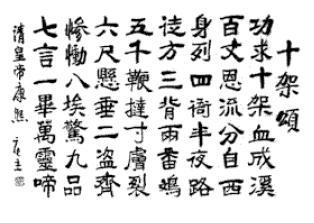 十架頌
功求十架血成溪
百丈恩流分自西
身列四衙半夜路
徒方三背兩番鳴
五千鞭撻寸膚裂
六尺懸垂二盜齊
慘慟八埃驚九品
七言一畢萬靈啼
清皇帝康熙